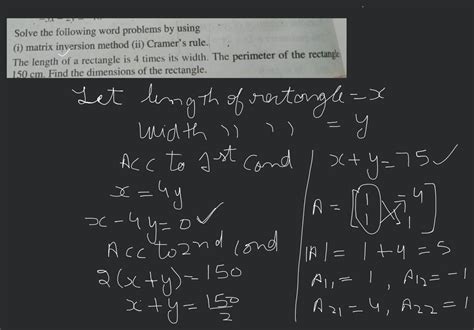 Solve the following word problems by using
(i) matrix inversion method (ii) Cramer's rule.
The length of a rectangle is 4 times its width. The perimeter of the rectangle
150 cm. Find the dimensions of the rectangle.
Let length of rectangle = x
width " " = y
Acc to 1st cond
x = 4y
x - 4y = 0 ✓
Acc to 2nd cond
2(x+y) = 150
x + y = 150/2
x + y = 75 ✓
A = [1 -4
1 1]
|A| = 1 + 4 = 5
A11 = 1, A12 = -1
A21 = 4, A22 = 1